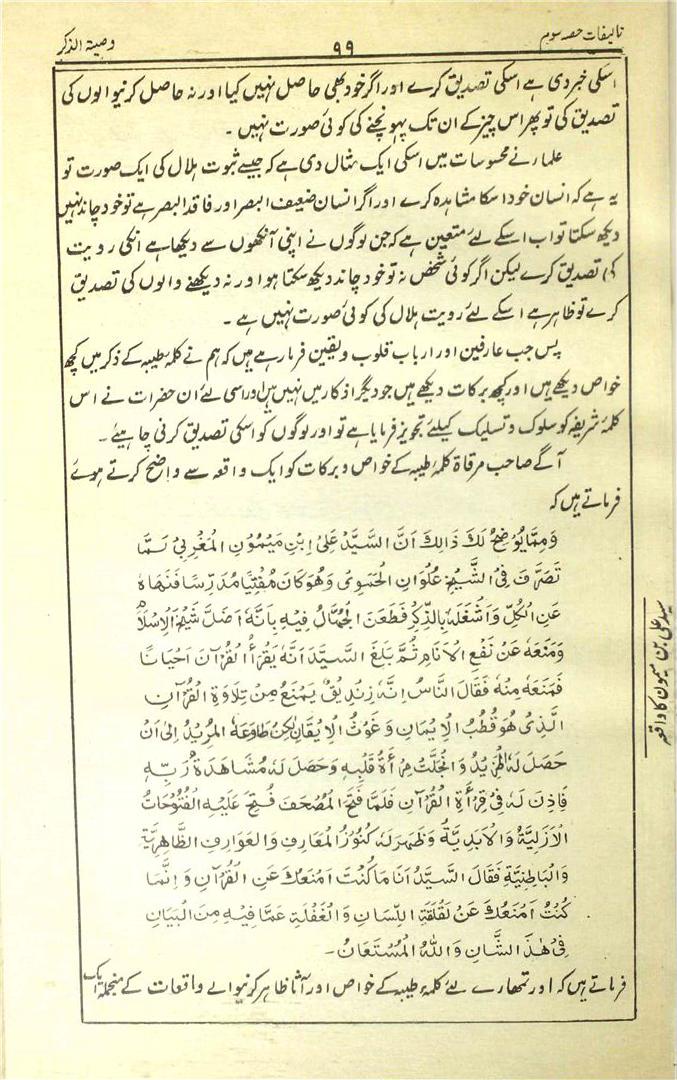 تالیفات حصہ سوم
۹۹
وصیۃ الذکر
اسکی خبر دی ہے اسکی تصدیق کرے اور اگر خود بھی حاصل نہیں کیا اور نہ حاصل کرنیوالوں کی
تصدیق کی تو پھر اس چیز کے ان تک پہونچنے کی کوئی صورت نہیں ۔
علماء نے محسوسات میں اسکی ایک مثال دی ہے کہ جیسے ثبوت ہلال کی ایک صورت تو
یہ ہے کہ انسان خود اسکا مشاہدہ کرے اور اگر انسان ضعیف البصر اور فاقد البصر ہے تو خود چاند نہیں
دیکھ سکتا تو اب اسکے لئے متعین ہے کہ جن لوگوں نے اپنی آنکھوں سے دیکھا ہے انکی رویت
کی تصدیق کرے لیکن اگر کوئی شخص نہ تو خود چاند دیکھ سکتا ہو اور نہ دیکھنے والوں کی تصدیق
کرے تو ظاہر ہے اسکے لئے رویت ہلال کی کوئی صورت نہیں ہے ۔
پس جب عارفین اور ارباب قلوب و یقین فرما رہے ہیں کہ ہم نے کلمۂ طیبہ کے ذکر میں کچھ
خواص دیکھے ہیں اور کچھ برکات دیکھے ہیں جو دیگر اذکار میں نہیں ہیں اور اسی لئے ان حضرات نے اس
کلمۂ شریفہ کو سلوک و تسلیک کیلئے تجویز فرمایا ہے تو اور لوگوں کو اسکی تصدیق کرنی چاہیئے ۔
آگے صاحب مرقاۃ کلمۂ طیبہ کے خواص و برکات کو ایک واقعہ سے واضح کرتے ہوئے
فرماتے ہیں کہ
وَمِمَّا يُوَضِّحُ لَكَ ذَالِكَ اَنَّ السَّيِّدَ عَلِىَّ ابْنِ مَيْمُوْنِ الْمَغْرِبِىَّ لَمَّا
تَصَرَّفَ فِى الشَّيْخِ عُلْوَانِ الْحَمَوِى وَهُوَ كَانَ مُفْتِيًا مُدَرِّسًا فَنَهَاهُ
عَنِ الْكُلِّ وَاَشْغَلَهٗ بِالذِّكْرِ فَطَعَنَ الْجُهَّالُ فِيْهِ بِاَنَّهٗ اَضَلَّ شَيْخَ الْاِسْلَامِ
وَمَنَعَهٗ عَنْ نَفْعِ الْاَنَامِ ثُمَّ بَلَغَ السَّيِّدَ اَنَّهٗ يَقْرَأُ الْقُرْآنَ اَحْيَانًا
فَمَنَعَهٗ مِنْهُ فَقَالَ النَّاسُ اِنَّهٗ زِنْدِيْقٌ يَمْنَعُ مِنْ تِلَاوَةِ الْقُرْآنِ
الَّذِىْ هُوَ قُطْبُ الْاِيْمَانِ وَغَوْثُ الْاِيْقَانِ لٰكِنْ طَاوَعَهُ الْمُرِيْدُ اِلٰى اَنْ
حَصَلَ لَهُ الْمَزِيْدُ وَانْجَلَتْ مِرْأَةُ قَلْبِهٖ وَحَصَلَ لَهٗ مُشَاهَدَةُ رَبِّهٖ
فَاَذِنَ لَهٗ فِىْ قِرْأَةِ الْقُرْآنِ فَلَمَّا فَتَحَ الْمُصْحَفَ فُتِحَ عَلَيْهِ الْفُتُوْحَاتُ
الْاَزَلِيَّةُ وَالْاَبَدِيَّةُ وَظَهَرَ لَهٗ كُنُوْزُ الْمَعَارِفِ وَالْعَوَارِفِ الظَّاهِرِيَّةِ
وَالْبَاطِنِيَّةِ فَقَالَ السَّيِّدُ اَنَا مَا كُنْتُ اَمْنَعُكَ عَنِ الْقُرْآنِ وَاِنَّمَا
كُنْتُ اَمْنَعُكَ عَنْ لَقْلَقَةِ اللِّسَانِ وَالْغَفْلَةِ عَمَّا فِيْهِ مِنَ الْبَيَانِ
فِىْ هٰذَا الشَّانِ وَاللّٰهُ الْمُسْتَعَانُ ۔
فرماتے ہیں کہ اور تمھارے لئے کلمۂ طیبہ کے خواص اور آثار ظاہر کرنیوالے واقعات کے منجملہ ایک
سید علی بن میمون کا واقعہ